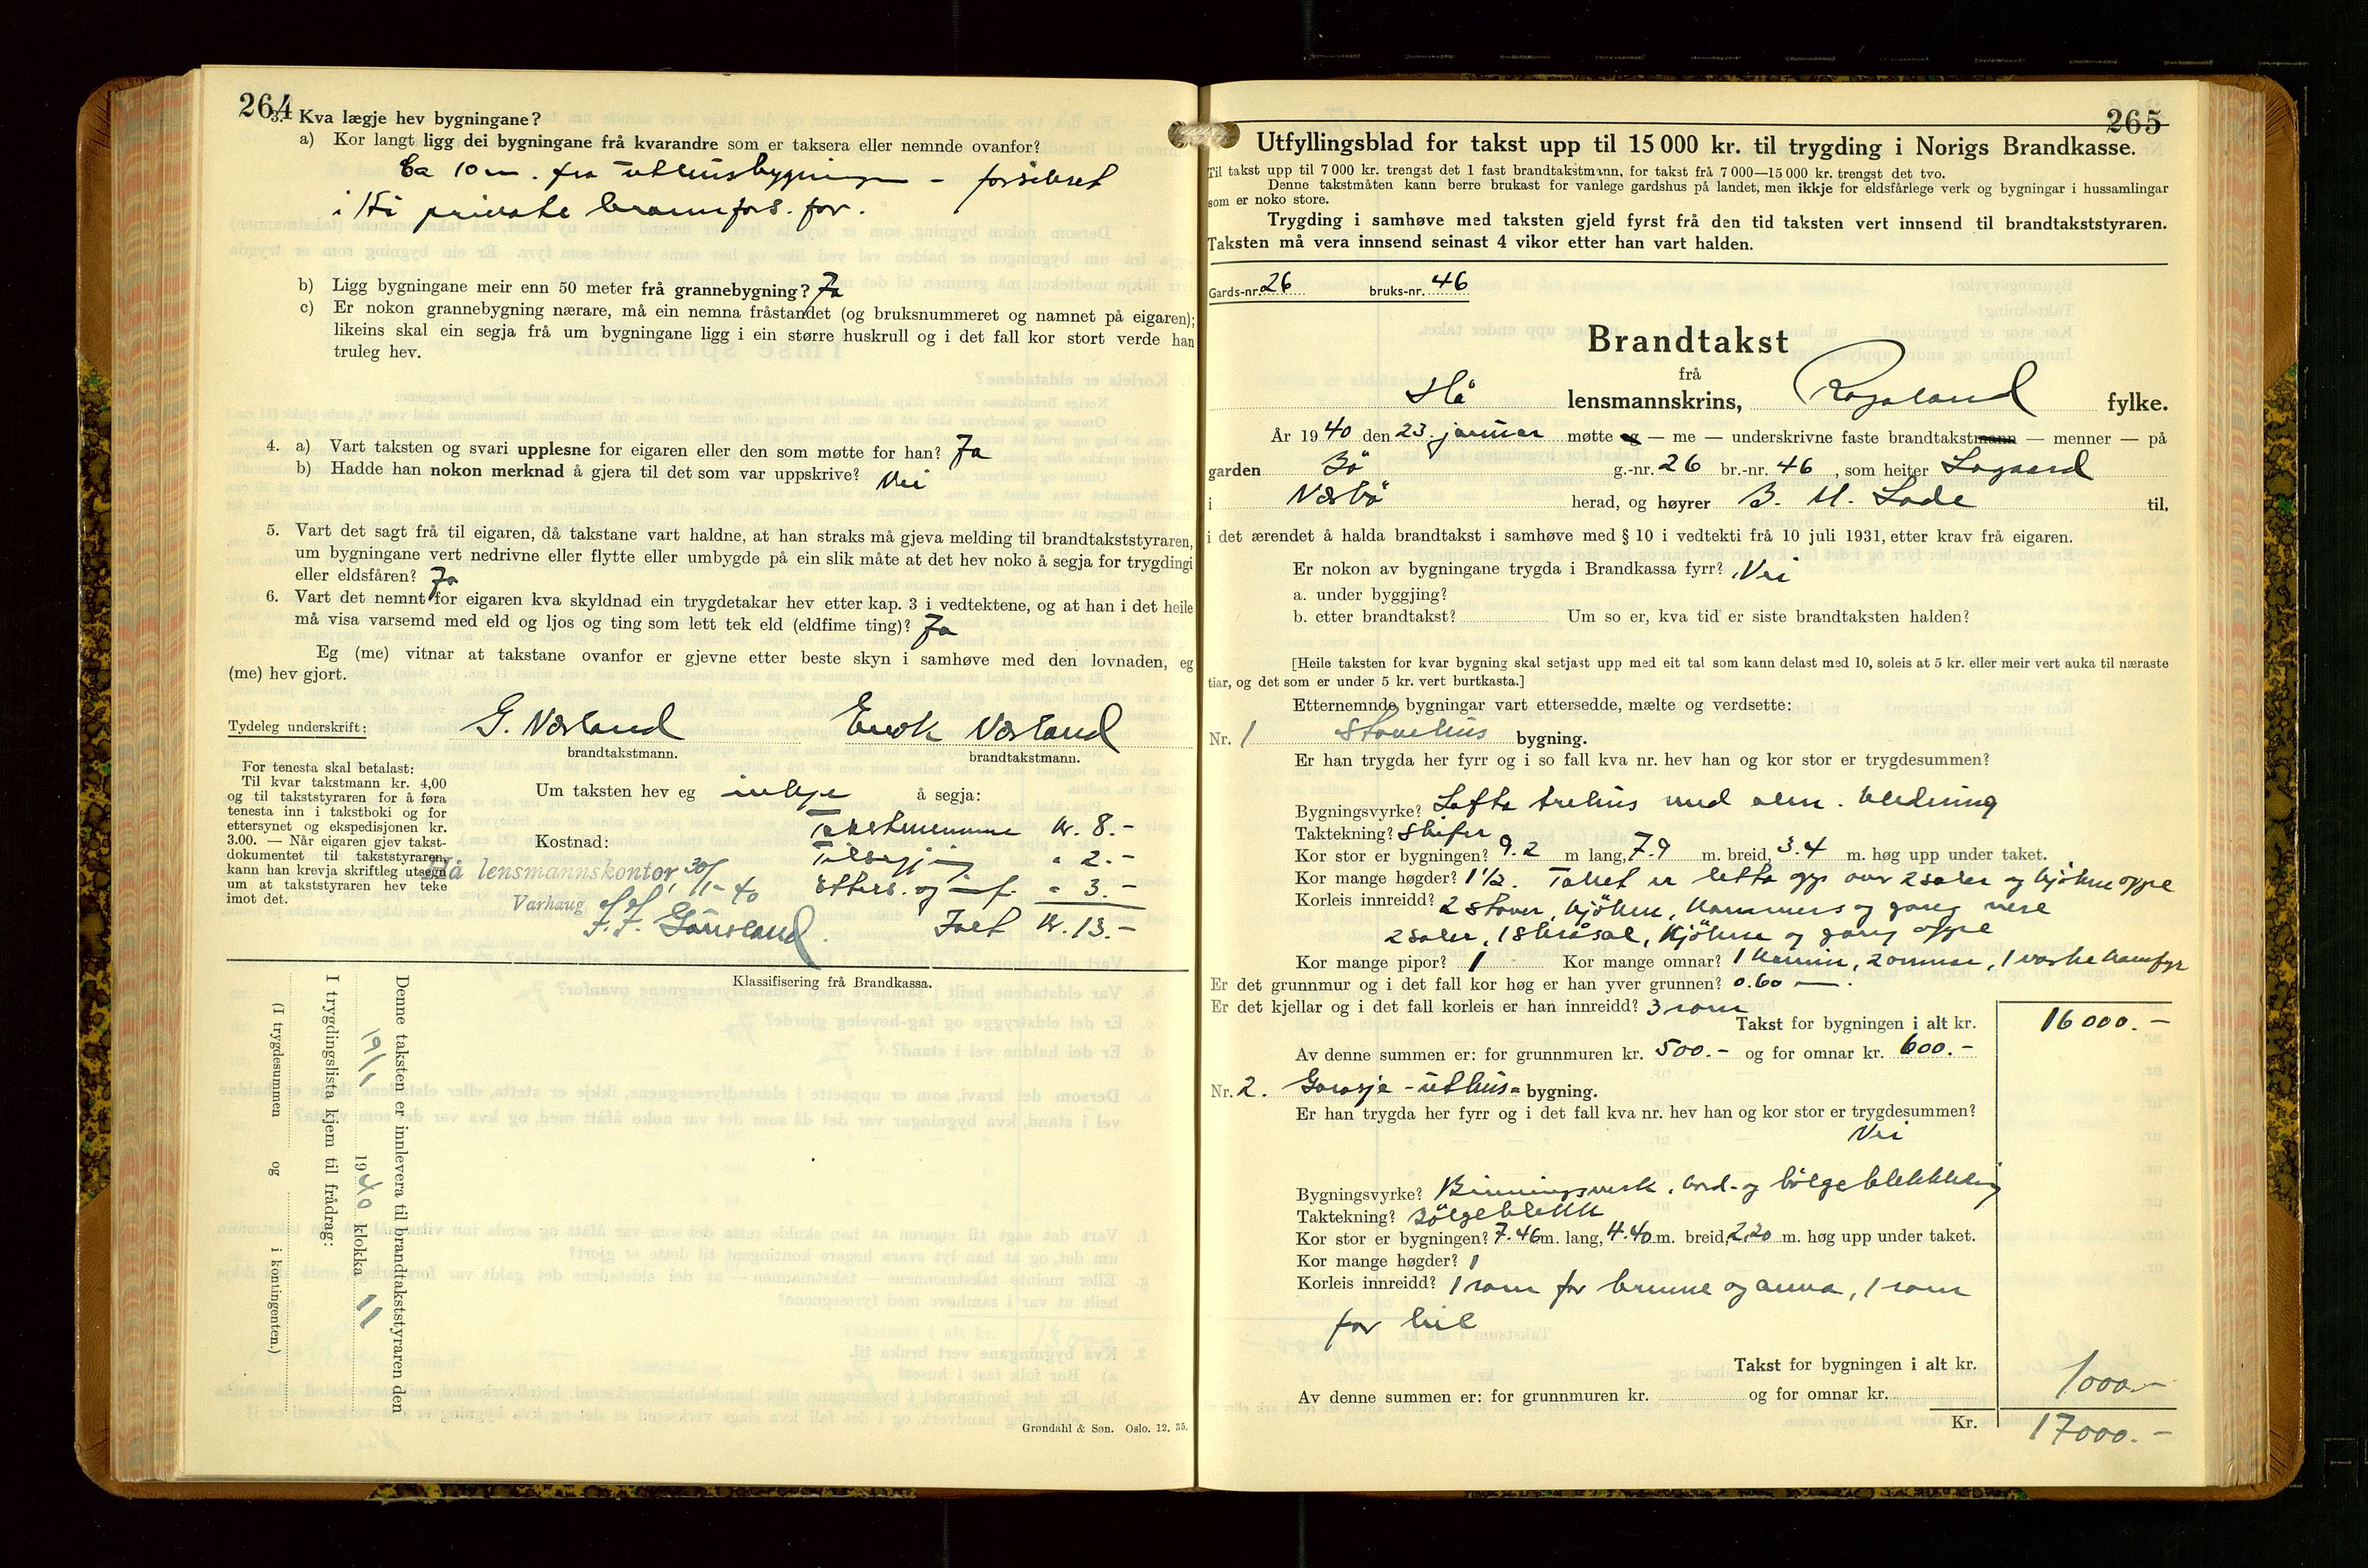 264
3. Kva lægje hev bygningane?
a) Kor langt ligg dei bygningane frå kvarandre som er taksera eller nemnde ovanfor?
Ca 10 m. fra uthusbygningen – forsikret
i private brannfors. for.
b) Ligg bygningane meir enn 50 meter frå grannebygning? Ja
c) Er nokon grannebygning nærare, må ein nemna fråstandet (og bruksnummeret og namnet på eigaren);
likeins skal ein segja frå um bygningane ligg i ein større huskrull og i det fall kor stort verde han
truleg hev.
4. a) Vart taksten og svari upplesne for eigaren eller den som møtte for han? Ja
b) Hadde han nokon merknad å gjera til det som var uppskrive? Nei
5. Vart det sagt frå til eigaren, då takstane vart haldne, at han straks må gjeva melding til brandtakststyraren,
um bygningane vert nedrivne eller flytte eller umbygde på ein slik måte at det hev noko å segja for trygdingi
eller eldsfåren? Ja
6. Vart det nemnt for eigaren kva skyldnad ein trygdetakar hev etter kap. 3 i vedtektene, og at han i det heile
må visa varsemd med eld og ljos og ting som lett tek eld (eldfime ting)? Ja
Eg (me) vitnar at takstane ovanfor er gjevne etter beste skyn i samhøve med den lovnaden, eg
(me) hev gjort.
Tydeleg underskrift: G. Nærland Enok Nærland
brandtakstmann. brandtakstmann.
For tenesta skal betalast:
Til kvar takstmann kr. 4,00
og til takststyraren for å føra
tenesta inn i takstboki og for
ettersynet og ekspedisjonen kr.
3.00. — Når eigaren gjev takst-
dokumentet til takststyraren,
kann han krevja skriftleg utsegn
um at takststyraren hev teke
imot det.
Um taksten hev eg intet å segja:
Kostnad: Takstmennene kr. 8.-
Tilsegjing " 2.-
Etters. og innf. " 3.-
Ialt kr. 13.-
Hå lensmannskontor, 30/1-40
Varhaug
Klassifisering frå Brandkassa.
Denne taksten er innlevera til brandtakststyraren den
19/1 1940 klokka 11
I trygdingslista kjem til frådrag:
(I trygdesummen og i kontingenten.)
Grøndahl & Søn. Oslo. 12. 35.
265
Utfyllingsblad for takst upp til 15 000 kr. til trygding i Norigs Brandkasse.
Til takst upp til 7 000 kr. trengst det 1 fast brandtakstmann, for takst frå 7 000—15 000 kr. trengst det tvo.
Denne takstmåten kann berre brukast for vanlege gardshus på landet, men ikkje for eldsfårlege verk og bygningar i hussamlingar
som er noko store.
Trygding i samhøve med taksten gjeld fyrst frå den tid taksten vert innsend til brandtakststyraren.
Taksten må vera innsend seinast 4 vikor etter han vart halden.
Gards-nr. 26 bruks-nr. 46
Brandtakst
frå
Hå lensmannskrins, Rogaland fylke.
År 1940 den 23. januar møtte eg — me — underskrivne faste brandtakstmann — menner — på
garden Bø g.-nr. 26 br.-nr. 46, som heiter Lagaard
i Nærbø herad, og høyrer B. H. Lode til,
i det ærendet å halda brandtakst i samhøve med § 10 i vedtekti frå 10 juli 1931, etter krav frå eigaren.
Er nokon av bygningane trygda i Brandkassa fyrr? Nei
a. under byggjing?
b. etter brandtakst? Um so er, kva tid er siste brandtaksten halden?
[Heile taksten for kvar bygning skal setjast upp med eit tal som kann delast med 10, soleis at 5 kr. eller meir vert auka til næraste
tiar, og det som er under 5 kr. vert burtkasta.]
Etternemnde bygningar vart ettersedde, mælte og verdsette:
Nr. 1 Stovehus bygning.
Er han trygda her fyrr og i so fall kva nr. hev han og kor stor er trygdesummen?
Bygningsvyrke? Lafta trehus med alm. kledning
Taktekning? Skifer
Kor stor er bygningen? 9.2 m lang, 7.9 m. breid, 3.4 m. høg upp under taket.
Kor mange høgder? 1 1/2. Taket er lefta opp over 2 saler og kjøkken oppe
Korleis innreidd? 2 stover, kjøkken, kammers og gang nere
2 saler, 1 skråsal, kjøkken og gang oppe
Kor mange pipor? 1 Kor mange omnar? 1 kamin, 2 omnar, 1 vaskekomfyr
Er det grunnmur og i det fall kor høg er han yver grunnen? 0.60 m.
Er det kjellar og i det fall korleis er han innreidd? 3 rom
Takst for bygningen i alt kr. 16 000.-
Av denne summen er: for grunnmuren kr. 500.- og for omnar kr. 600.-
Nr. 2. Garasje-uthus- bygning.
Er han trygda her fyrr og i det fall kva nr. hev han og kor stor er trygdesummen?
Nei
Bygningsvyrke? Binningsverk, bord- og bølgeblekkledning
Taktekning? Bølgeblekk
Kor stor er bygningen? 7.46 m. lang, 4.40 m. breid, 2,20 m. høg upp under taket.
Kor mange høgder? 1
Korleis innreidd? 1 rom for brenne og anna, 1 rom
for bil
Takst for bygningen i alt kr. 1000.-
Av denne summen er: for grunnmuren kr. og for omnar kr.
Kr. 17000.-